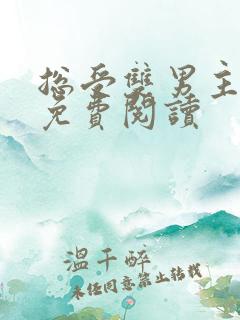 総受雙男主
免費閱讀
溫千醉
未经同意禁止转载